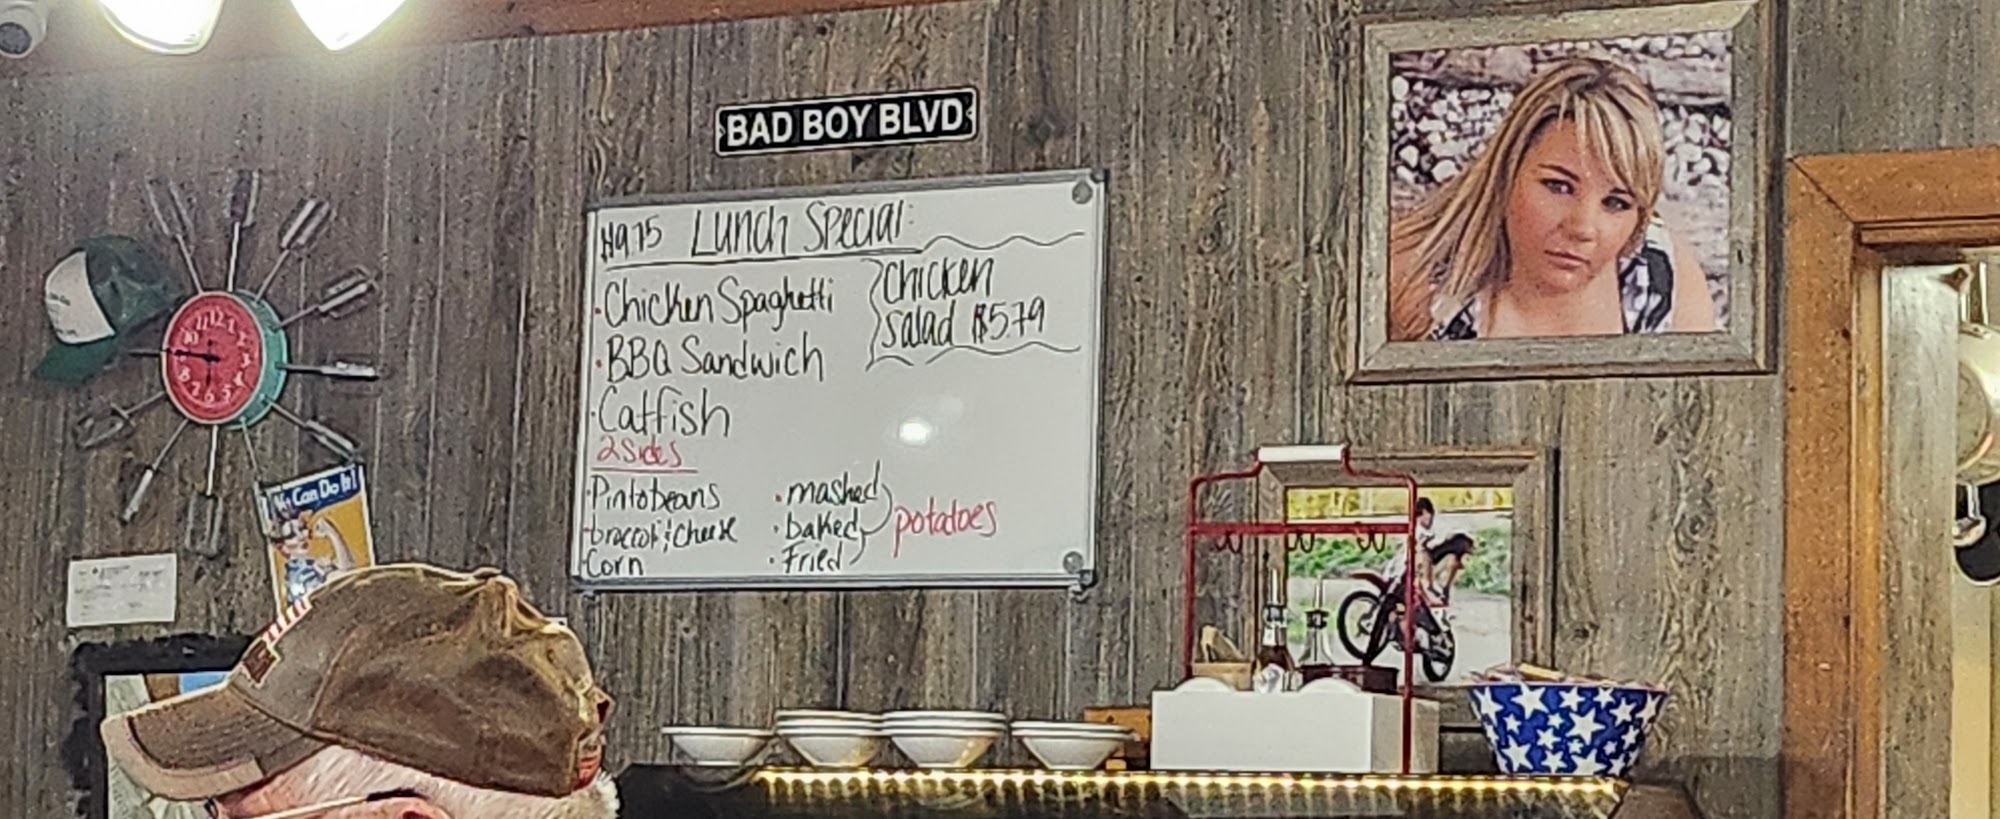 BAD BOY BLVD
$9.75 Lunch Special:
Chicken Spaghetti
BBQ Sandwich
Catfish
Chicken
salad $5.79
2 sides
Pintobeans
broccoli & cheese
Corn
mashed
baked
Fried
potatoes
We Can Do It!